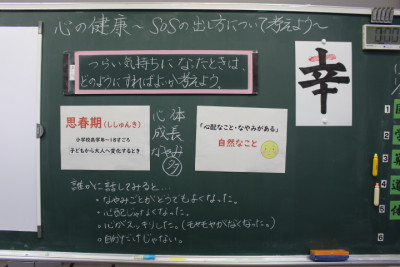 心の健康～SOSの出し方について考えよう～
つらい気持ちになったときは、
どのようにすればよいか考えよう。
幸
思春期(ししゅんき)
小学校高学年～18才ごろ
子どもから大人へ変化するとき
心 体
成長
なやみ
多
「心配なこと・なやみがある」
自然なこと
誰かに話してみると…
・なやみごとがどうでもよくなった。
・心配じゃなくなった。
・心がスッキリした。(モヤモヤがなくなった。)
・自分だけじゃない。
4
5
6